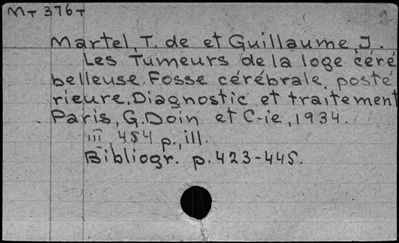 Mт 376т
Martel, T. de et Guillaume, J.
Les Tumeurs de la loge céré
belleuse. Fosse cérébrale posté
rieure. Diagnostic et traitement
Paris, G. Doin et C-ie, 1934.
III, 454 p., ill.
Bibliogr. p. 423-445.